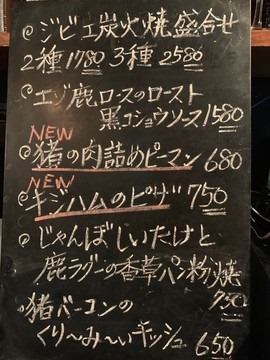 ジビエ炭火焼盛合せ
2種1780 3種2580
エゾ鹿ロースのロースト
黒コショウソース1580
NEW
猪の肉詰めピーマン 680
NEW
キジハムのピザ 750
じゃんぼしいたけと
鹿ラグーの香草パン粉焼
750
猪ベーコンの
くり〜み〜いキッシュ 650